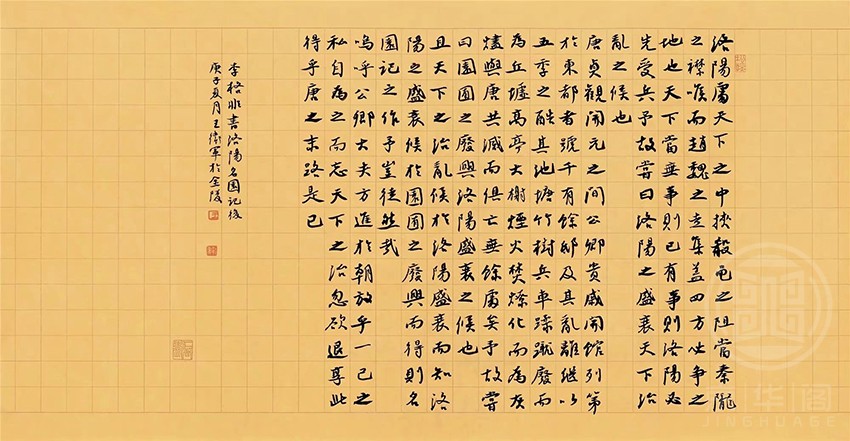 洛陽處天下之中挾殽黽之阻當秦隴
之襟喉而趙魏之走集蓋四方必爭之
地也天下當無事則已有事則洛陽必
先受兵予故嘗曰洛陽之盛衰天下治
亂之候也
唐貞觀開元之間公卿貴戚開館列第
於東都者號千有餘邸及其亂離繼以
五季之酷其池塘竹樹兵車蹂蹴廢而
為丘墟高亭大榭煙火焚燎化而為灰
燼與唐共滅而俱亡無餘處矣予故嘗
曰園囿之廢興洛陽盛衰之候也
且天下之治亂候於洛陽盛衰而知洛
陽之盛衰候於園囿之廢興而得則名
園記之作予豈徒然哉
嗚呼公卿大夫方進於朝放乎一己之
私自為之而忘天下之治忽欲退享此
得乎唐之末路是已
李格非書洛陽名園記後
庚子夏月王衛軍於金陵
華閣
JINSHUAGE